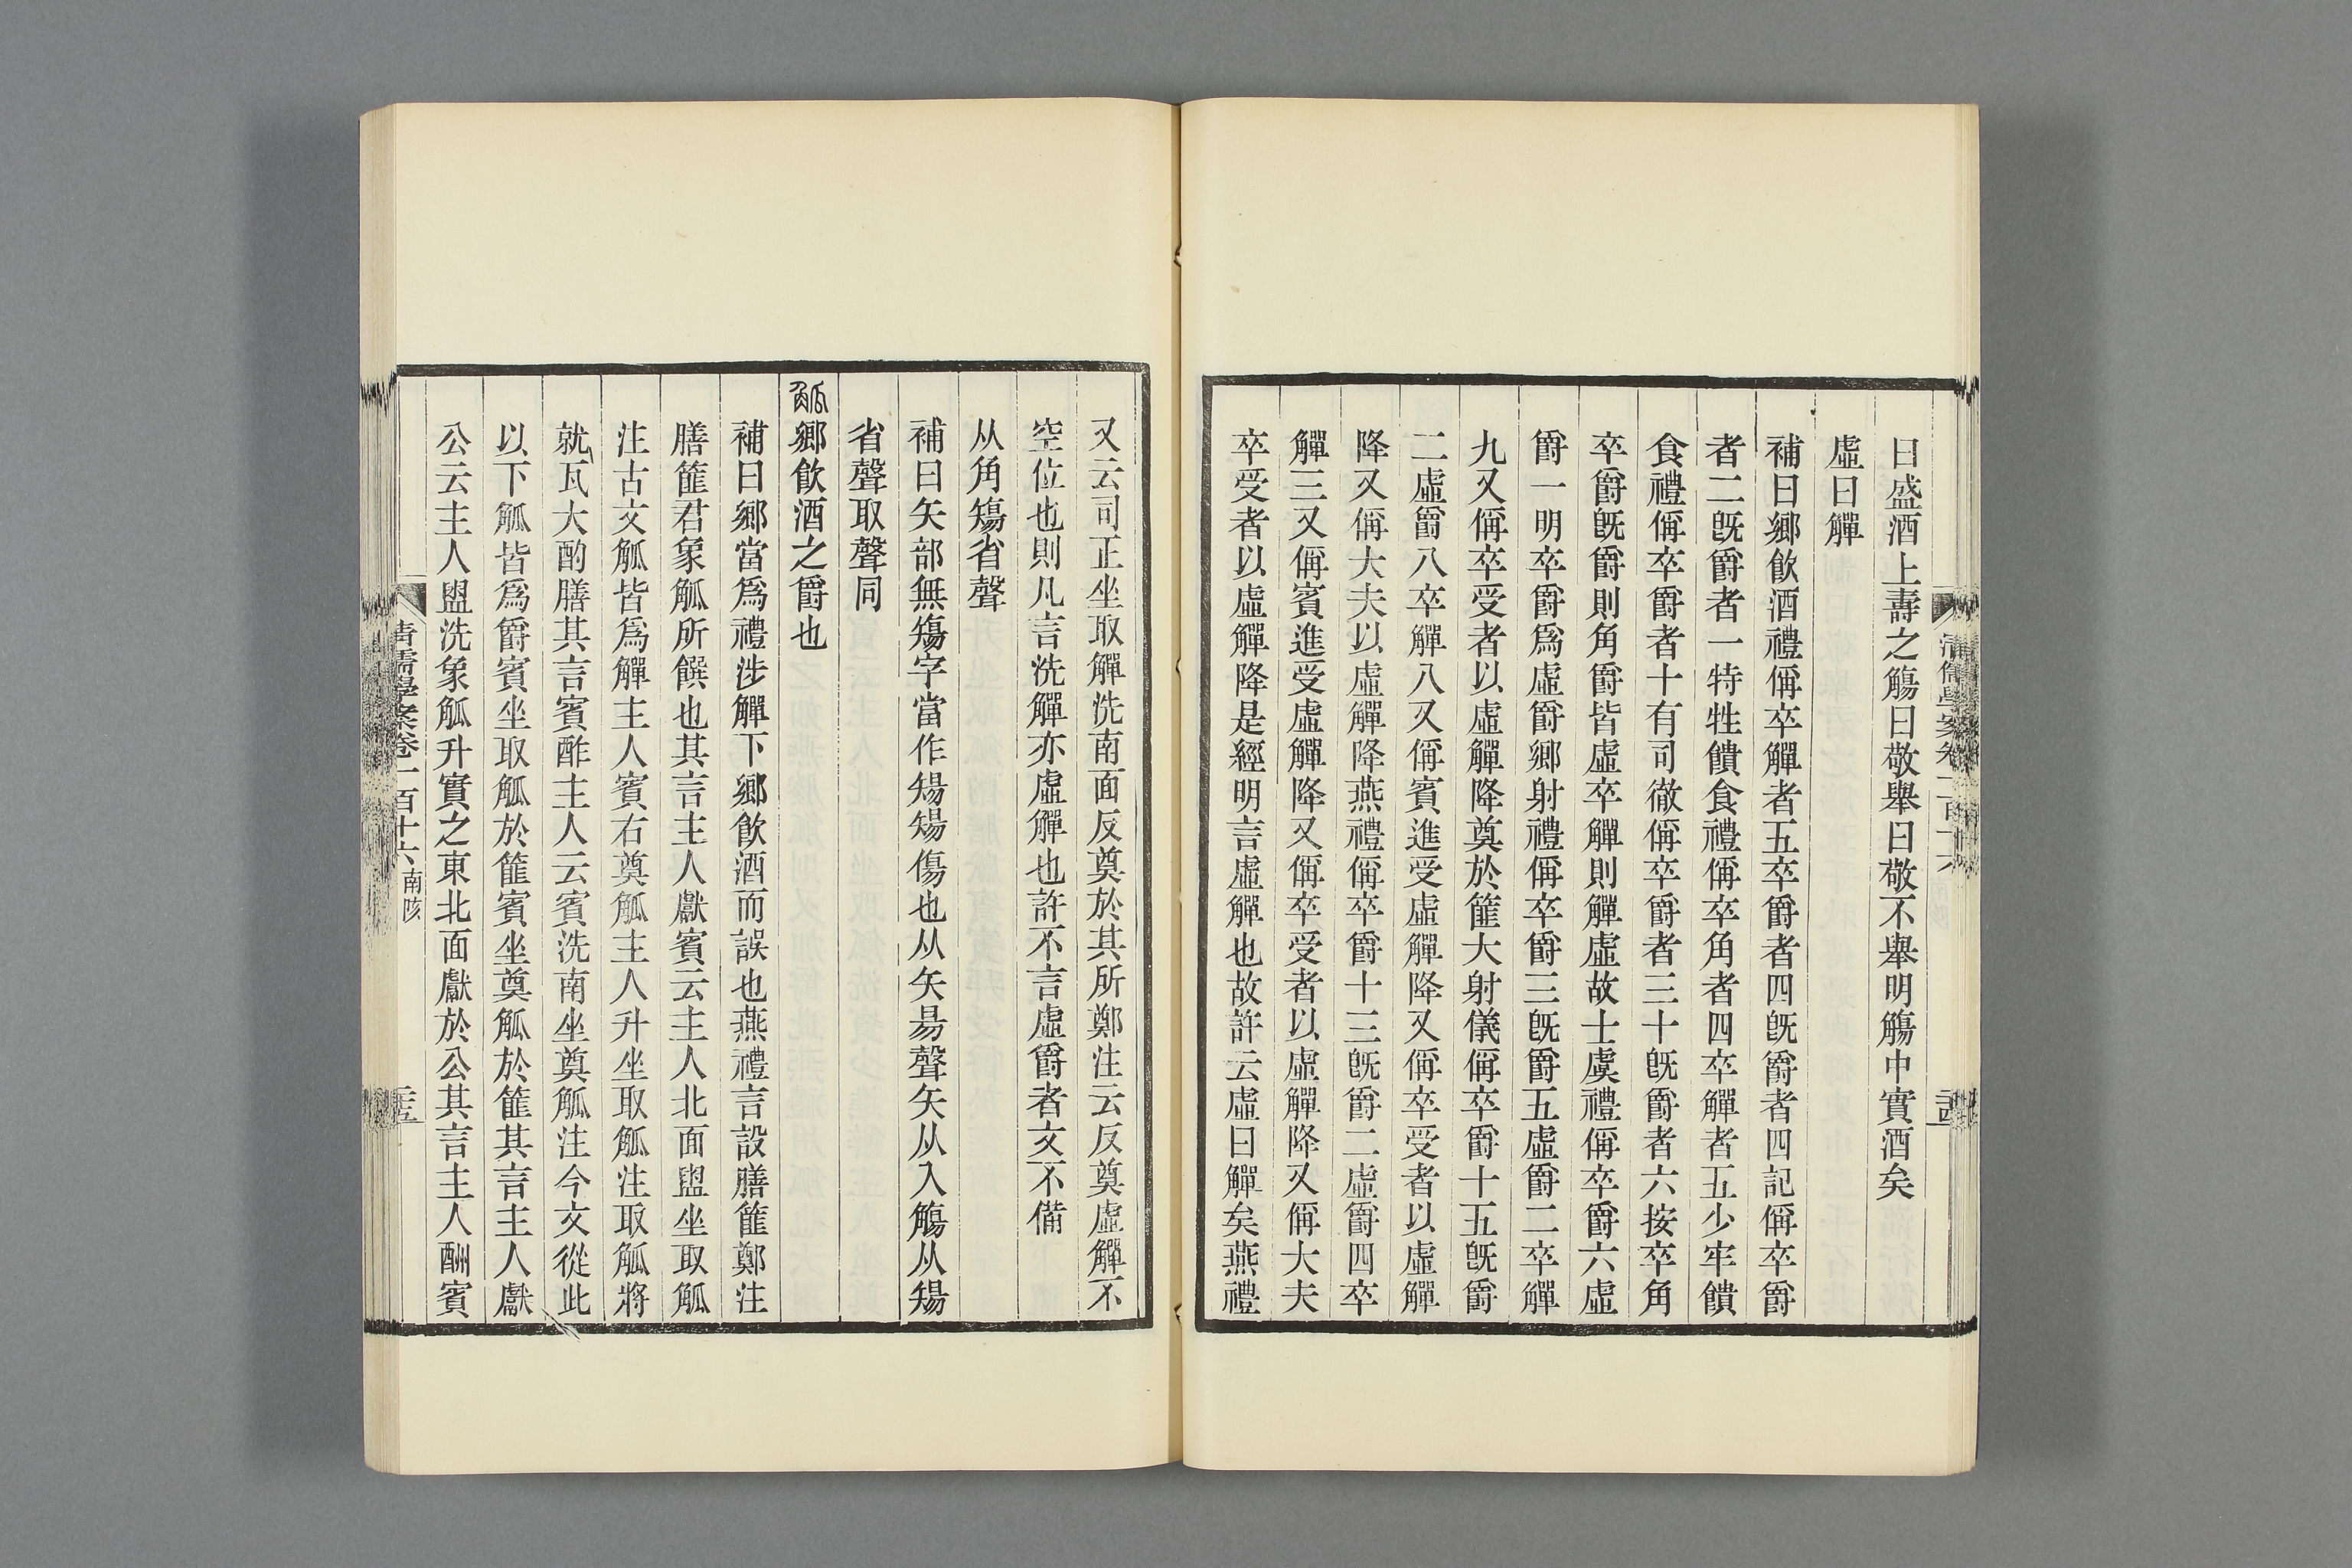 曰盛酒上壽之觴曰敬舉曰敬不舉明觴中實酒矣
虛曰觶
補曰鄉飲酒禮偁卒觶者五卒爵者四旣爵者四記偁卒爵
者二旣爵者一特牲饋食禮偁卒角者四卒觶者五少牢饋
食禮偁卒爵者十有司徹偁卒爵者三十旣爵者六按卒角
卒爵旣爵則角爵皆虛卒觶則觶虛故士虞禮偁卒爵六虛
爵一明卒爵爲虛爵鄉射禮偁卒爵三旣爵五虛爵二卒觶
九又偁卒受者以虛觶降奠於篚大射儀偁卒爵十五旣爵
二虛爵八卒觶八又偁賓進受虛觶降又偁卒受者以虛觶
降又偁大夫以虛觶降燕禮偁卒爵十三旣爵二虛爵四卒
觶三又偁賓進受虛觶降又偁卒受者以虛觶降又偁大夫
卒受者以虛觶降是經明言虛觶也故許云虛曰觶矣燕禮
又云司正坐取觶洗南面反奠於其所鄭注云反奠虛觶不
空位也則凡言洗觶亦虛觶也許不言虛爵者文不備
从角𥏻省聲
補曰矢部無𥏻字當作𥏫𥏫傷也从矢昜聲矢从入觴从𥏫
省聲取聲同
觚鄉飮酒之爵也
補曰鄉當爲禮涉觶下鄉飮酒而誤也燕禮言設膳篚鄭注
膳篚君象觚所饌也其言主人獻賓云主人北面盥坐取觚
注古文觚皆爲觶主人賓右奠觚主人升坐取觚注取觚將
就瓦大酌膳其言賓酢主人云賓洗南坐奠觚注今文從此
以下觚皆爲爵賓坐取觚於篚賓坐奠觚於篚其言主人獻
公云主人盥洗象觚升實之東北面獻於公其言主人酬賓
清儒學案卷一百十六 南陔